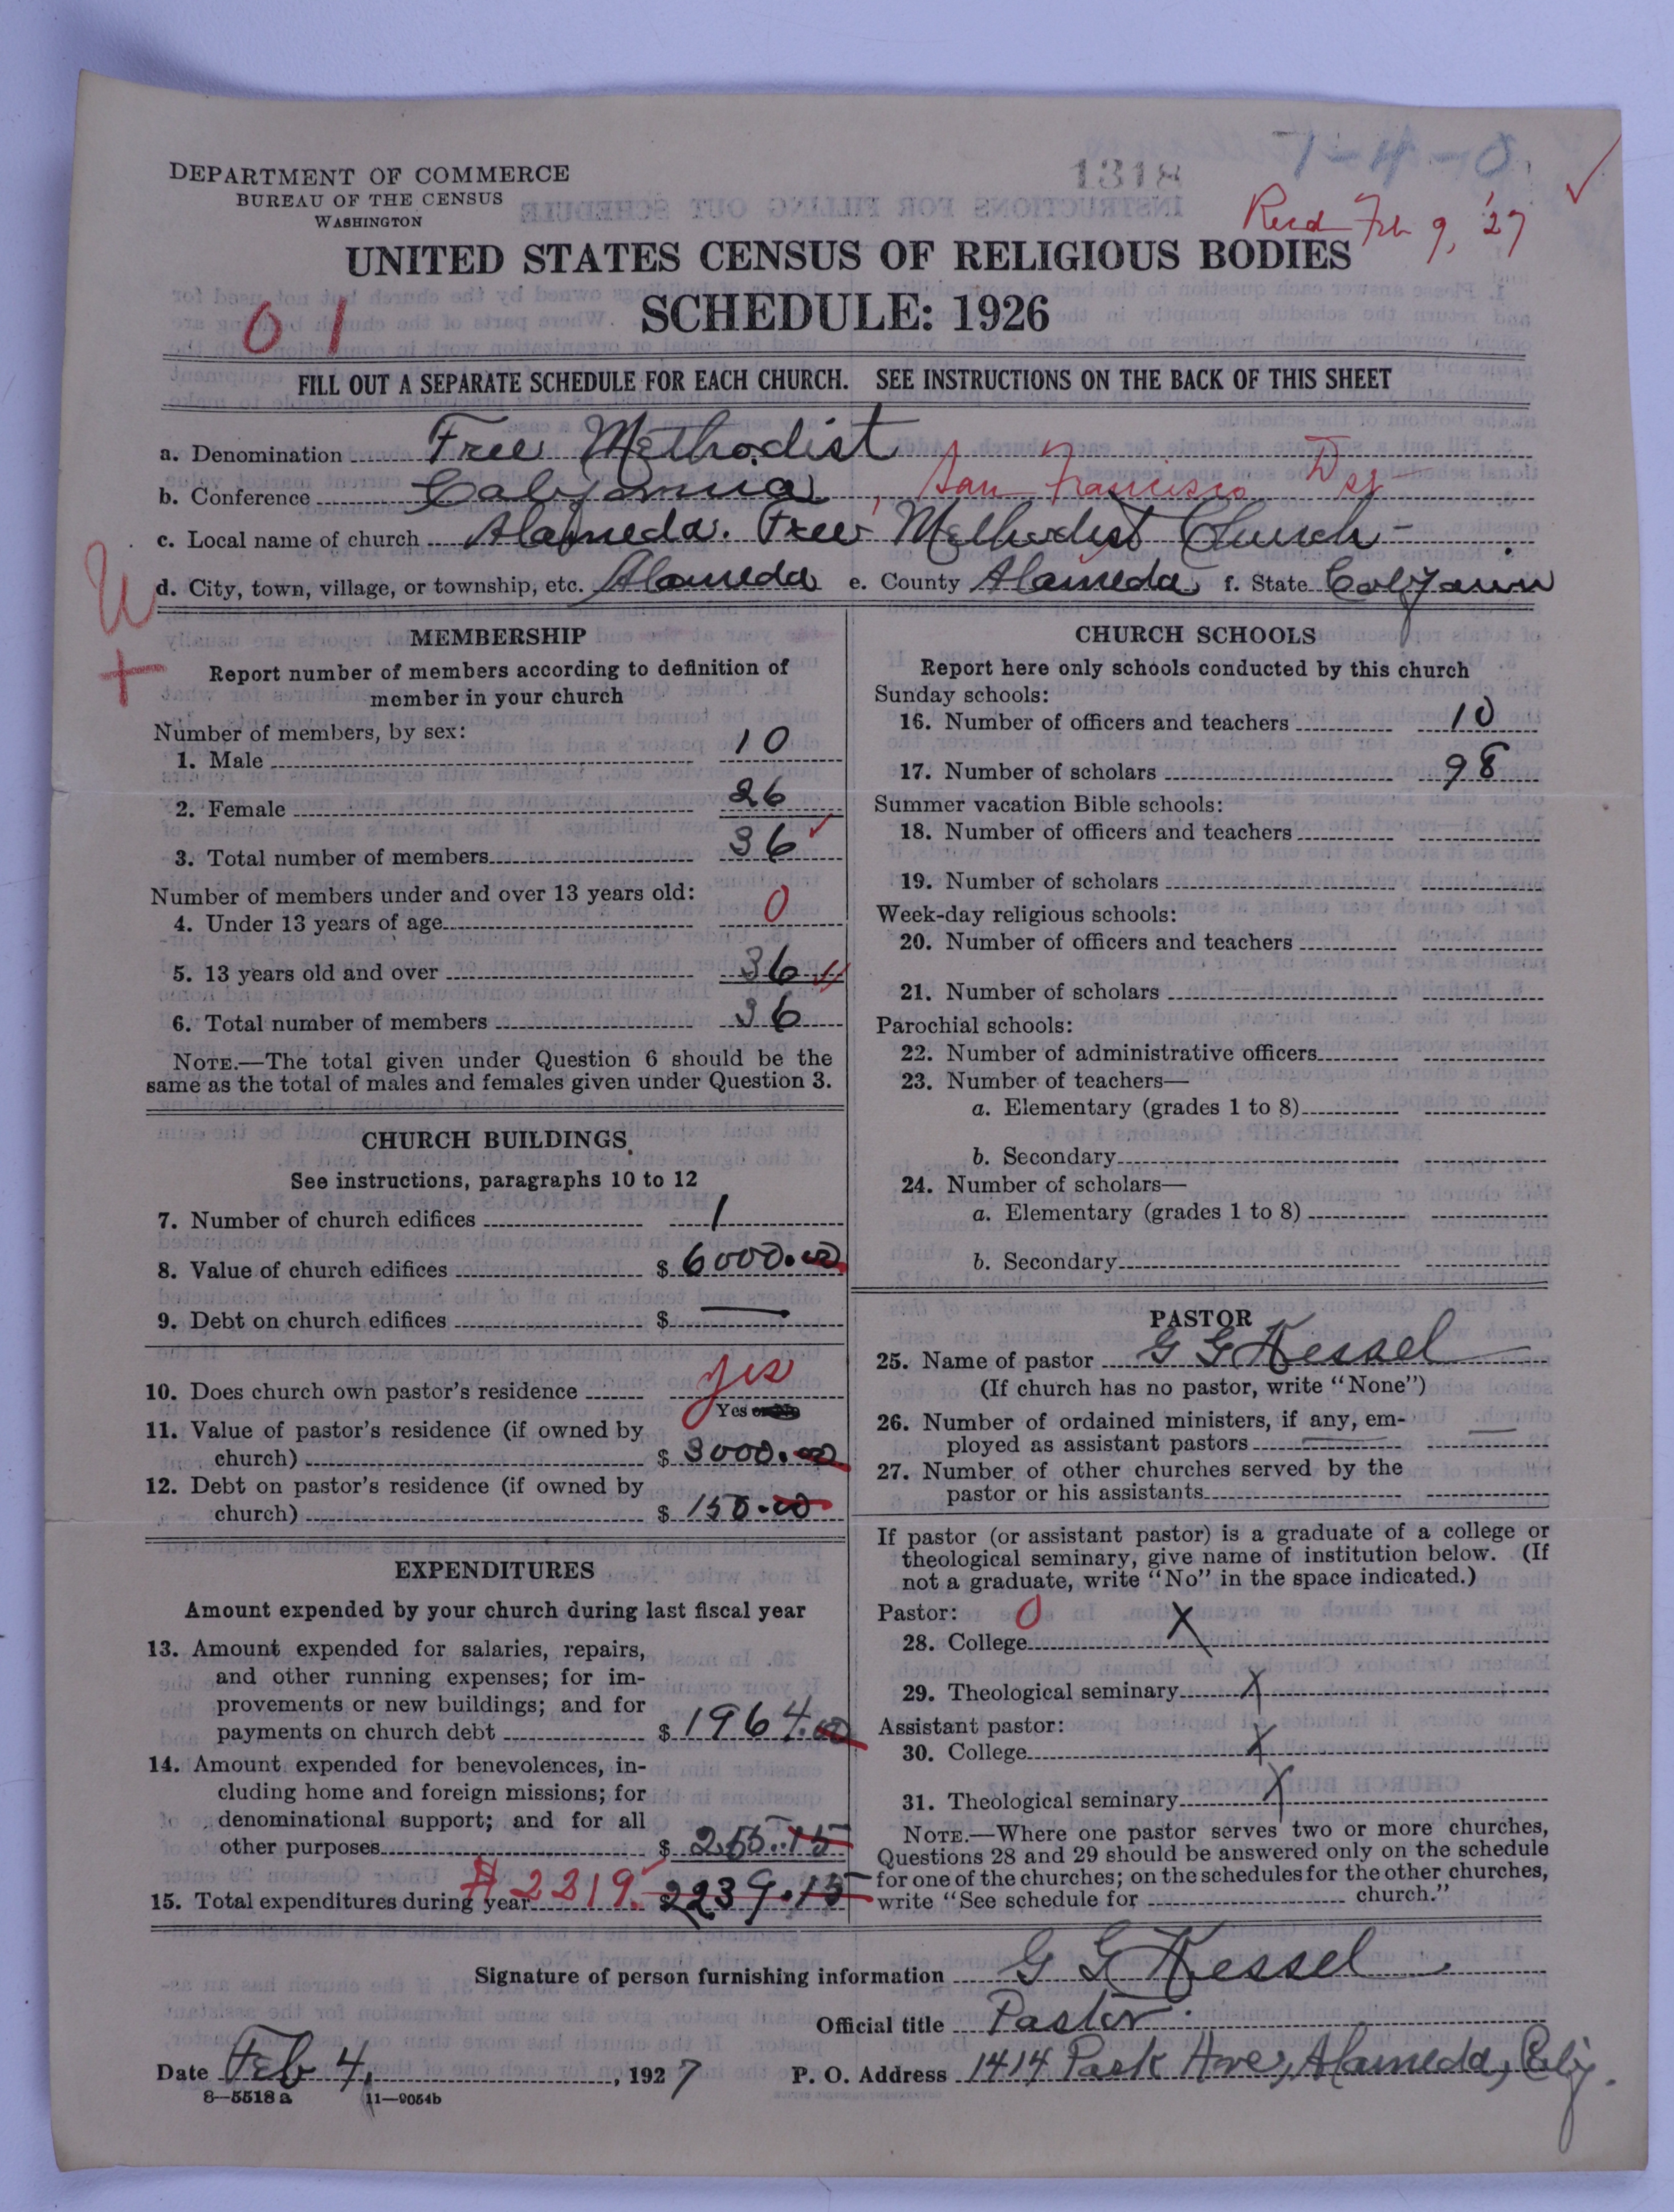 1-4-0
1318
DEPARTMENT OF COMMERCE
BUREAU OF THE CENSUS
WASHINGTON
Recd Feb 9, '27
UNITED STATES CENSUS OF RELIGIOUS BODIES
SCHEDULE: 1926
0 1
FILL OUT A SEPARATE SCHEDULE FOR EACH CHURCH. SEE INSTRUCTIONS ON THE BACK OF THIS SHEET
a. Denomination Free Methodist
b. Conference California, San Francisco
c. Local name of church Alameda. Free Methodist Church
d. City, town, village, or township, etc. Alameda e. County Alameda f. State
MEMBERSHIP
Report number of members according to definition of
member in your church
Number of members, by sex:
1. Male 10
2. Female 26
3. Total number of members 36
Number of members under and over 13 years old:
4. Under 13 years of age 0
5. 13 years old and over 36
6. Total number of members 36
NOTE.—The total given under Question 6 should be the
same as the total of males and females given under Question 3.
CHURCH BUILDINGS
See instructions, paragraphs 10 to 12
7. Number of church edifices 1
8. Value of church edifices $ 6000.00
9. Debt on church edifices $ —
10. Does church own pastor's residence yes
Yes or No
11. Value of pastor's residence (if owned by
church) $ 3000.00
12. Debt on pastor's residence (if owned by
church) $ 150.00
EXPENDITURES
Amount expended by your church during last fiscal year
13. Amount expended for salaries, repairs,
and other running expenses; for im-
provements or new buildings; and for
payments on church debt $ 1964.00
14. Amount expended for benevolences, in-
cluding home and foreign missions; for
denominational support; and for all
other purposes $ 255.15
15. Total expenditures during year $ 2219. 2239.15
CHURCH SCHOOLS
Report here only schools conducted by this church
Sunday schools:
16. Number of officers and teachers 10
17. Number of scholars 98
Summer vacation Bible schools:
18. Number of officers and teachers
19. Number of scholars
Week-day religious schools:
20. Number of officers and teachers
21. Number of scholars
Parochial schools:
22. Number of administrative officers
23. Number of teachers—
a. Elementary (grades 1 to 8)
b. Secondary
24. Number of scholars—
a. Elementary (grades 1 to 8)
b. Secondary
PASTOR
25. Name of pastor G G Kessel
(If church has no pastor, write "None")
26. Number of ordained ministers, if any, em-
ployed as assistant pastors —
27. Number of other churches served by the
pastor or his assistants
If pastor (or assistant pastor) is a graduate of a college or
theological seminary, give name of institution below. (If
not a graduate, write "No" in the space indicated.)
Pastor: 0
28. College X
29. Theological seminary X
Assistant pastor:
30. College X
31. Theological seminary X
NOTE.—Where one pastor serves two or more churches,
Questions 28 and 29 should be answered only on the schedule
for one of the churches; on the schedules for the other churches,
write "See schedule for church."
Signature of person furnishing information G G Kessel
Official title Pastor
Date Feb 4, 1927 P. O. Address 1414 Park Ave, Alameda, Calif.
8—5518 a 11—9054b